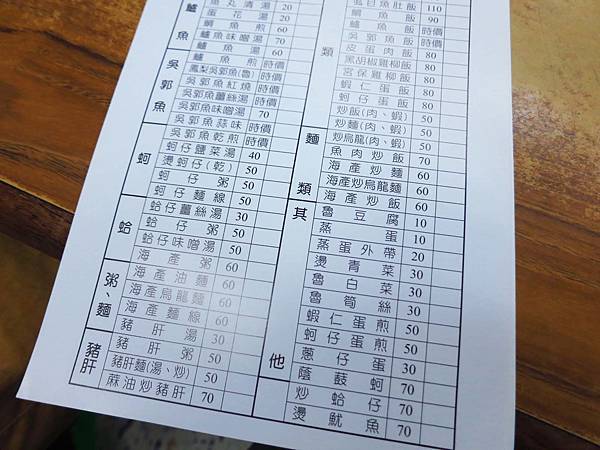 鱸魚
魚丸清湯 20
蛋花湯 20
鯛魚煎 60
鱸魚味噌湯 70
鱸魚湯 60
鱸魚煎 時價
吳郭魚
鳳梨吳郭魚(魯) 時價
吳郭魚紅燒 時價
吳郭魚薑絲湯 時價
吳郭魚味噌湯 70
吳郭魚蒜味 時價
吳郭魚乾煎 時價
蚵
蚵仔鹽菜湯 40
燙蚵仔(乾) 50
蚵仔粥 50
蚵仔麵線 50
蛤
蛤仔薑絲湯 30
蛤仔粥 50
蛤仔味噌湯 50
粥、麵
海產粥 60
海產油麵 60
海產烏龍麵 60
海產麵線 60
豬肝
豬肝湯 30
豬肝粥 50
豬肝麵(湯、炒) 50
蔴油炒豬肝 70
類
虱目魚肚飯 110
鯛魚飯 90
鱸魚飯 時價
吳郭魚飯 時價
皮蛋肉飯 80
黑胡椒雞柳飯 80
宮保雞柳飯 80
蝦仁蛋飯 80
蚵仔蛋飯 80
炒飯(肉、蝦) 50
麵類
炒麵(肉、蝦) 50
炒烏龍(肉、蝦) 50
魚肉炒飯 70
海產炒麵 60
海產炒烏龍麵 60
海產炒飯 60
其他
魯豆腐 10
蒸蛋 10
蒸蛋外帶 20
燙青菜 30
魯白菜 30
魯筍絲 30
蝦仁蛋煎 50
蚵仔蛋煎 50
蔥仔蛋 30
蔭鼓蚵 70
炒蛤仔 70
燙魷魚 70